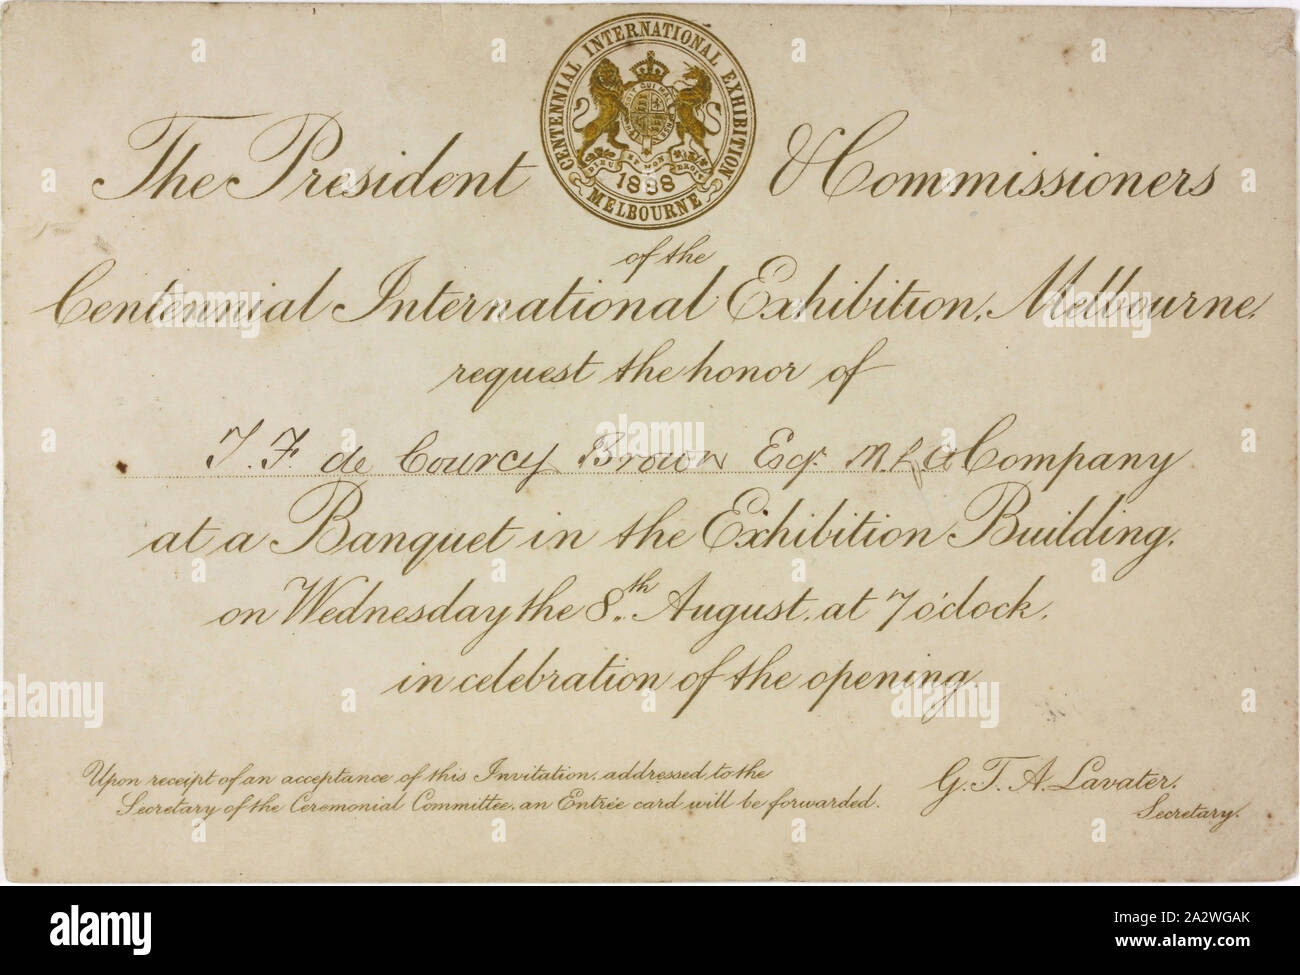 CENTENNIAL INTERNATIONAL EXHIBITION
DIEU ET MON DROIT
1888
MELBOURNE
The President & Commissioners
of the
Centennial International Exhibition, Melbourne,
request the honor of
T. F. de Courcy Brown Esqr. Company
at a Banquet in the Exhibition Building,
on Wednesday the 8th August, at 7 o'clock,
in celebration of the opening.
Upon receipt of an acceptance of this Invitation, addressed to the
Secretary of the Ceremonial Committee, an Entrée card will be forwarded.
G. T. A. Lavater,
Secretary.
alamy
Image ID: 2A2WGAK
www.alamy.com